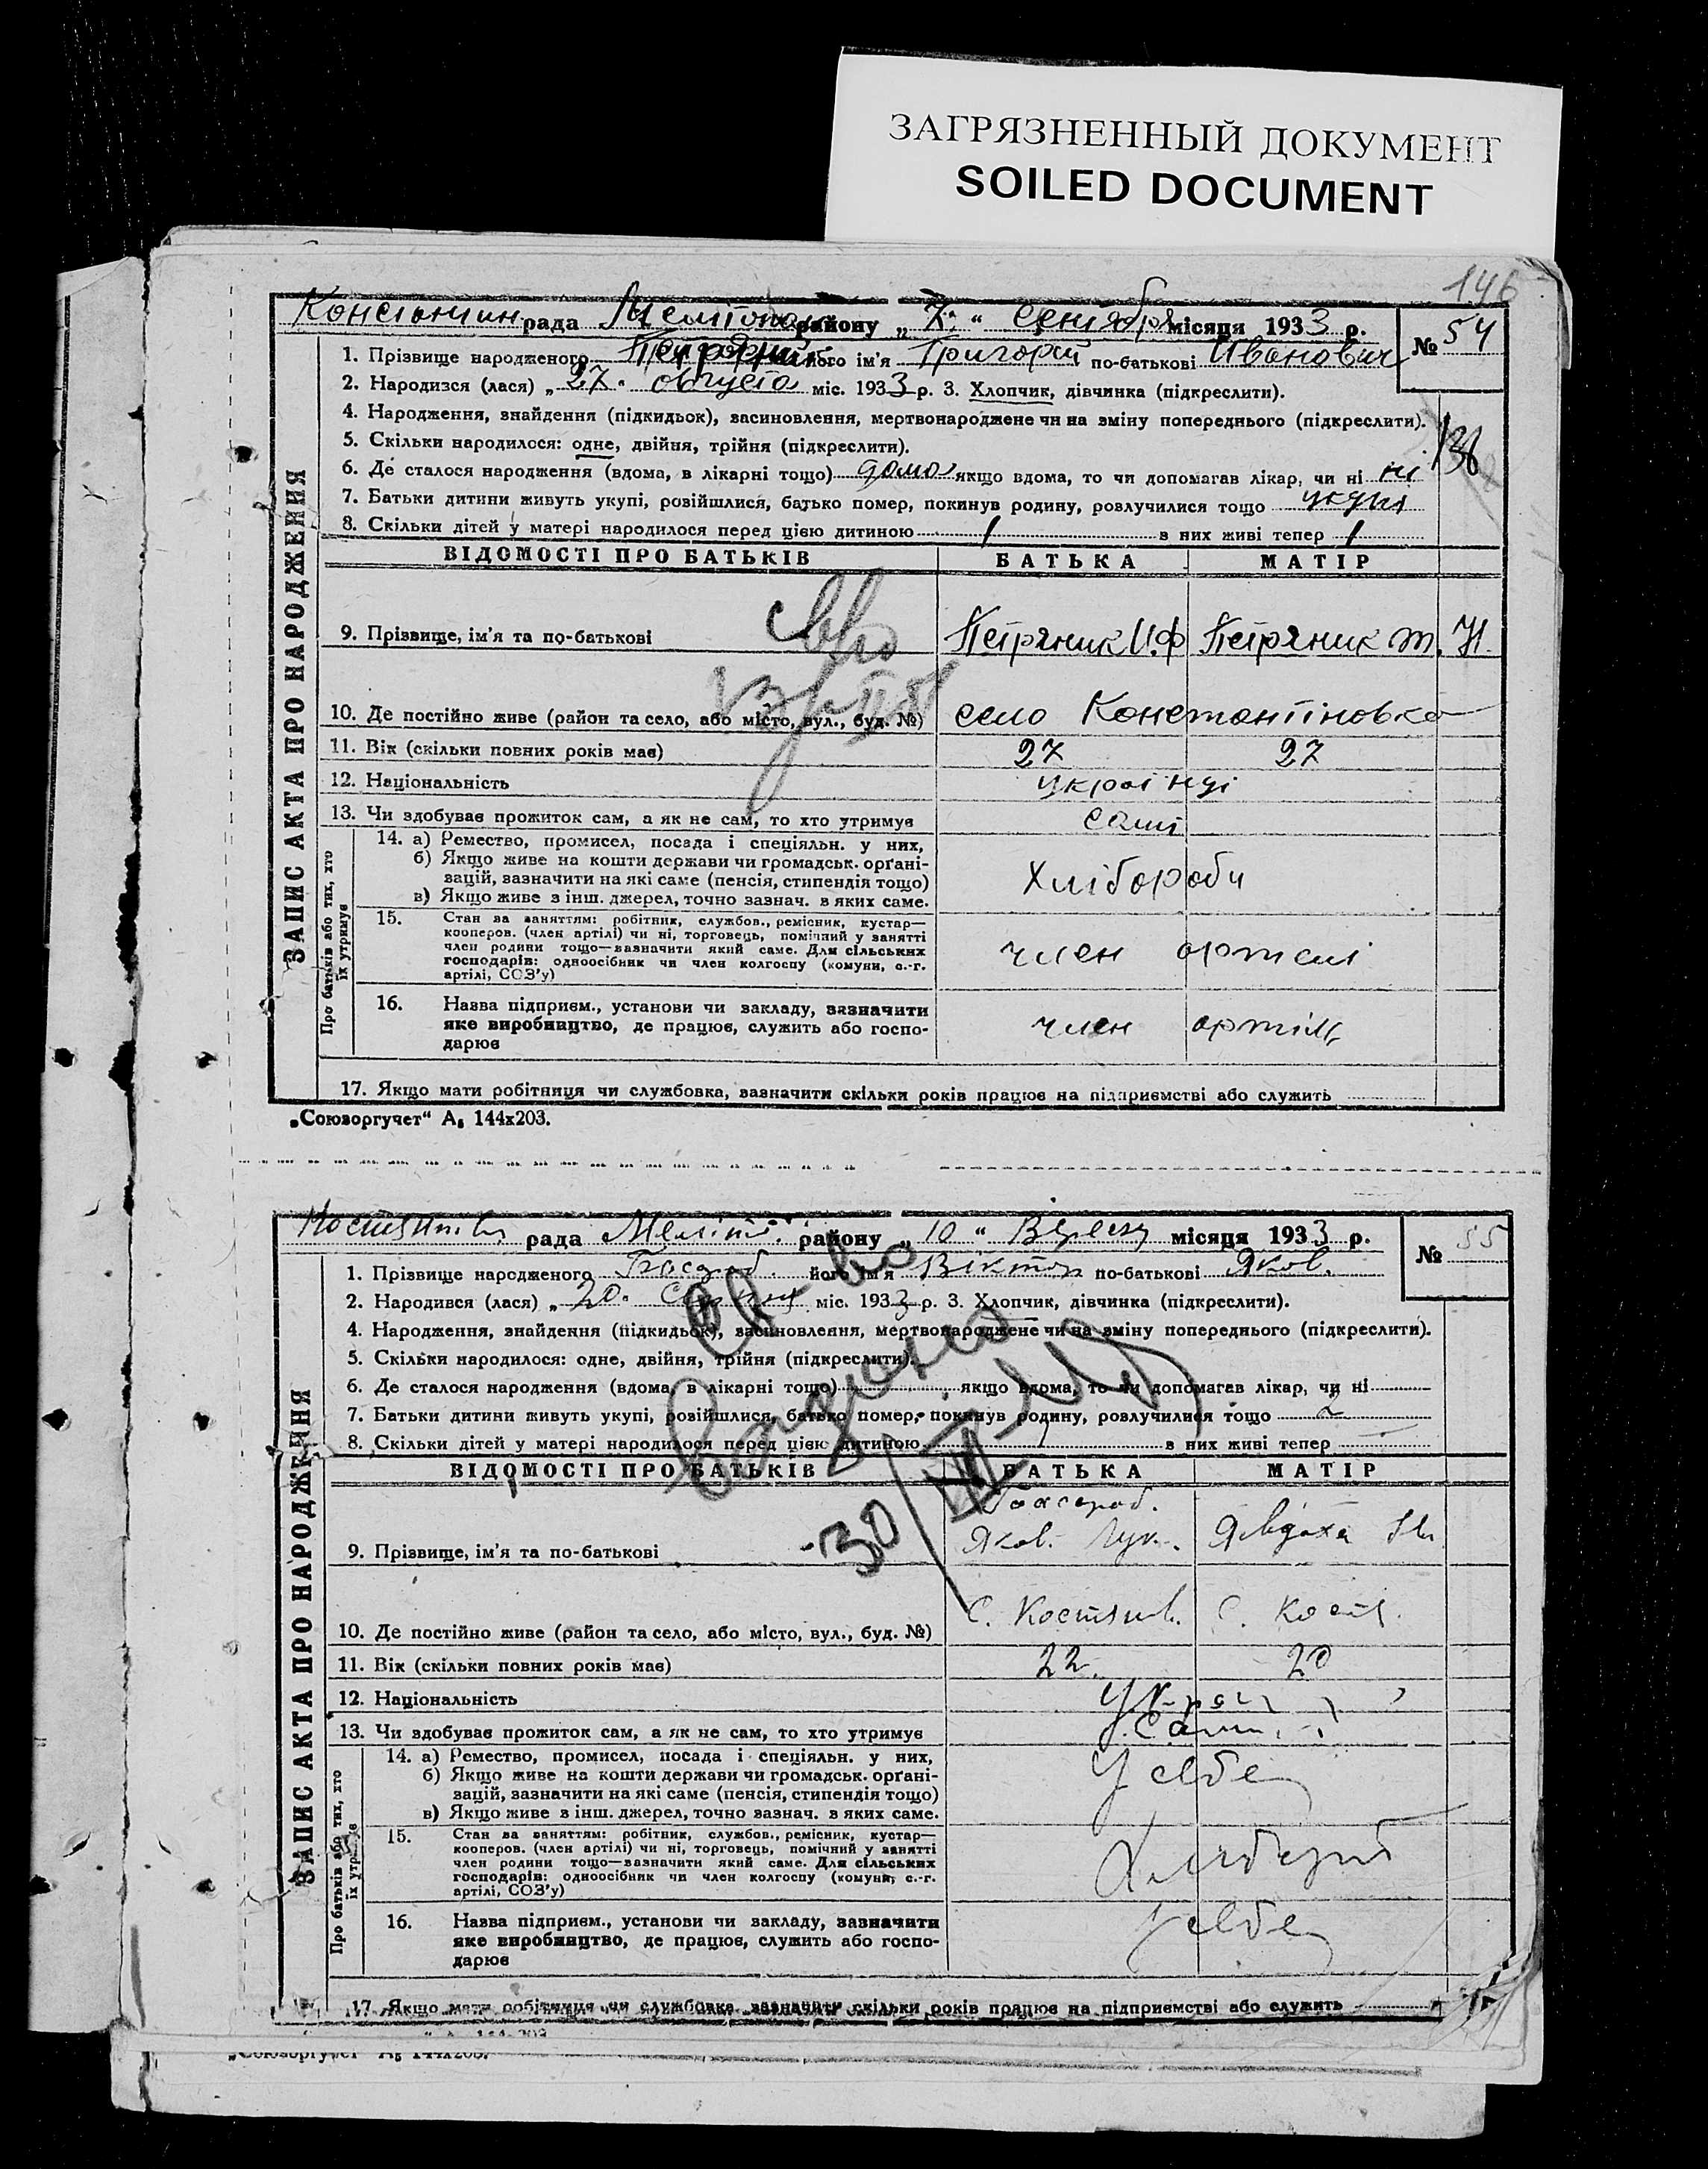 ЗАГРЯЗНЕННЫЙ ДОКУМЕНТ
SOILED DOCUMENT
146
Константин рада Мелітопол району „7“ Сентября місяця 1933 р. № 54
1. Прізвище народженого його ім'я Григорій по-батькові Иванович
2. Народився (лася) „27“ августа міс. 1933 р. 3. Хлопчик, дівчинка (підкреслити).
4. Народження, знайдення (підкидьок), засиновлення, мертвонароджене чи на зміну попереднього (підкреслити).
5. Скільки народилося: одне, двійня, трійня (підкреслити).
6. Де сталося народження (вдома, в лікарні тощо) дома якщо вдома, то чи допомагав лікар, чи ні ні
7. Батьки дитини живуть укупі, розійшлися, батько помер, покинув родину, розлучилися тощо укупі
8. Скільки дітей у матері народилося перед цією дитиною 1 в них живі тепер 1
ЗАПИС АКТА ПРО НАРОДЖЕННЯ
ВІДОМОСТІ ПРО БАТЬКІВ БАТЬКА МАТІР
9. Прізвище, ім'я та по-батькові Петряник И.Ф Петряник Т. И.
10. Де постійно живе (район та село, або місто, вул., буд. №) село Константіновка
11. Вік (скільки повних років має) 27 27
12. Національність українці
13. Чи здобував прожиток сам, а як не сам, то хто утримує самі
Про батьків або тих, хто їх утримує
14. а) Ремество, промисел, посада і спеціяльн. у них,
б) Якщо живе на кошти держави чи громадськ. орґані-
зацій, зазначити на які саме (пенсія, стипендія тощо) Хлібороби
в) Якщо живе з інш. джерел, точно зазнач. в яких саме.
15. Стан за заняттям: робітник, службов., ремісник, кустар—
кооперов. (член артілі) чи ні, торговець, помічний у занятті
член родини тощо—зазначити який саме. Для сільських член артелі
господарів: одноосібник чи член колгоспу (комуни, с.-г.
артілі, СОЗ'у)
16. Назва підприєм., установи чи закладу, зазначити
яке виробництво, де працює, служить або госпо- член артілі
дарює
17. Якщо мати робітниця чи службовка, зазначити скільки років працює на підприємстві або служить
„Союзоргучет“ А₅ 144х203.
рада Меліт. району „10“ Вересня місяця 1933 р. № 55
1. Прізвище народженого його ім'я Віктор по-батькові Яков.
2. Народився (лася) „20“ Серпня міс. 1933 р. 3. Хлопчик, дівчинка (підкреслити).
4. Народження, знайдення (підкидьок), засиновлення, мертвонароджене чи на зміну попереднього (підкреслити).
5. Скільки народилося: одне, двійня, трійня (підкреслити).
6. Де сталося народження (вдома, в лікарні тощо) якщо вдома, то чи допомагав лікар, чи ні
7. Батьки дитини живуть укупі, розійшлися, батько помер, покинув родину, розлучилися тощо
8. Скільки дітей у матері народилося перед цією дитиною в них живі тепер
ЗАПИС АКТА ПРО НАРОДЖЕННЯ
ВІДОМОСТІ ПРО БАТЬКІВ БАТЬКА МАТІР
9. Прізвище, ім'я та по-батькові Яков. Лук. Явдоха
10. Де постійно живе (район та село, або місто, вул., буд. №) С. Костянт. С. Костя.
11. Вік (скільки повних років має) 22. 20
12. Національність Украї
13. Чи здобував прожиток сам, а як не сам, то хто утримує Сами
Про батьків або тих, хто їх утримує
14. а) Ремество, промисел, посада і спеціяльн. у них,
б) Якщо живе на кошти держави чи громадськ. орґані- У себе
зацій, зазначити на які саме (пенсія, стипендія тощо)
в) Якщо живе з інш. джерел, точно зазнач. в яких саме.
15. Стан за заняттям: робітник, службов., ремісник, кустар—
кооперов. (член артілі) чи ні, торговець, помічний у занятті
член родини тощо—зазначити який саме. Для сільських
господарів: одноосібник чи член колгоспу (комуни, с.-г.
артілі, СОЗ'у)
16. Назва підприєм., установи чи закладу, зазначити У себе
яке виробництво, де працює, служить або госпо-
дарює
17. Якщо мати робітниця чи службовка, зазначити скільки років працює на підприємстві або служить
„Союзоргучет“ А₅ 144х203.